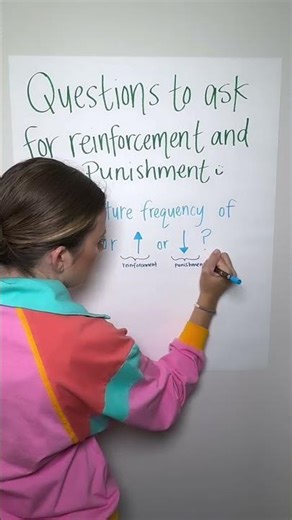 Questions to ask
for reinforcement and
Punishment :)
frequency of
↑ or ↓ ?
reinforcement punishment